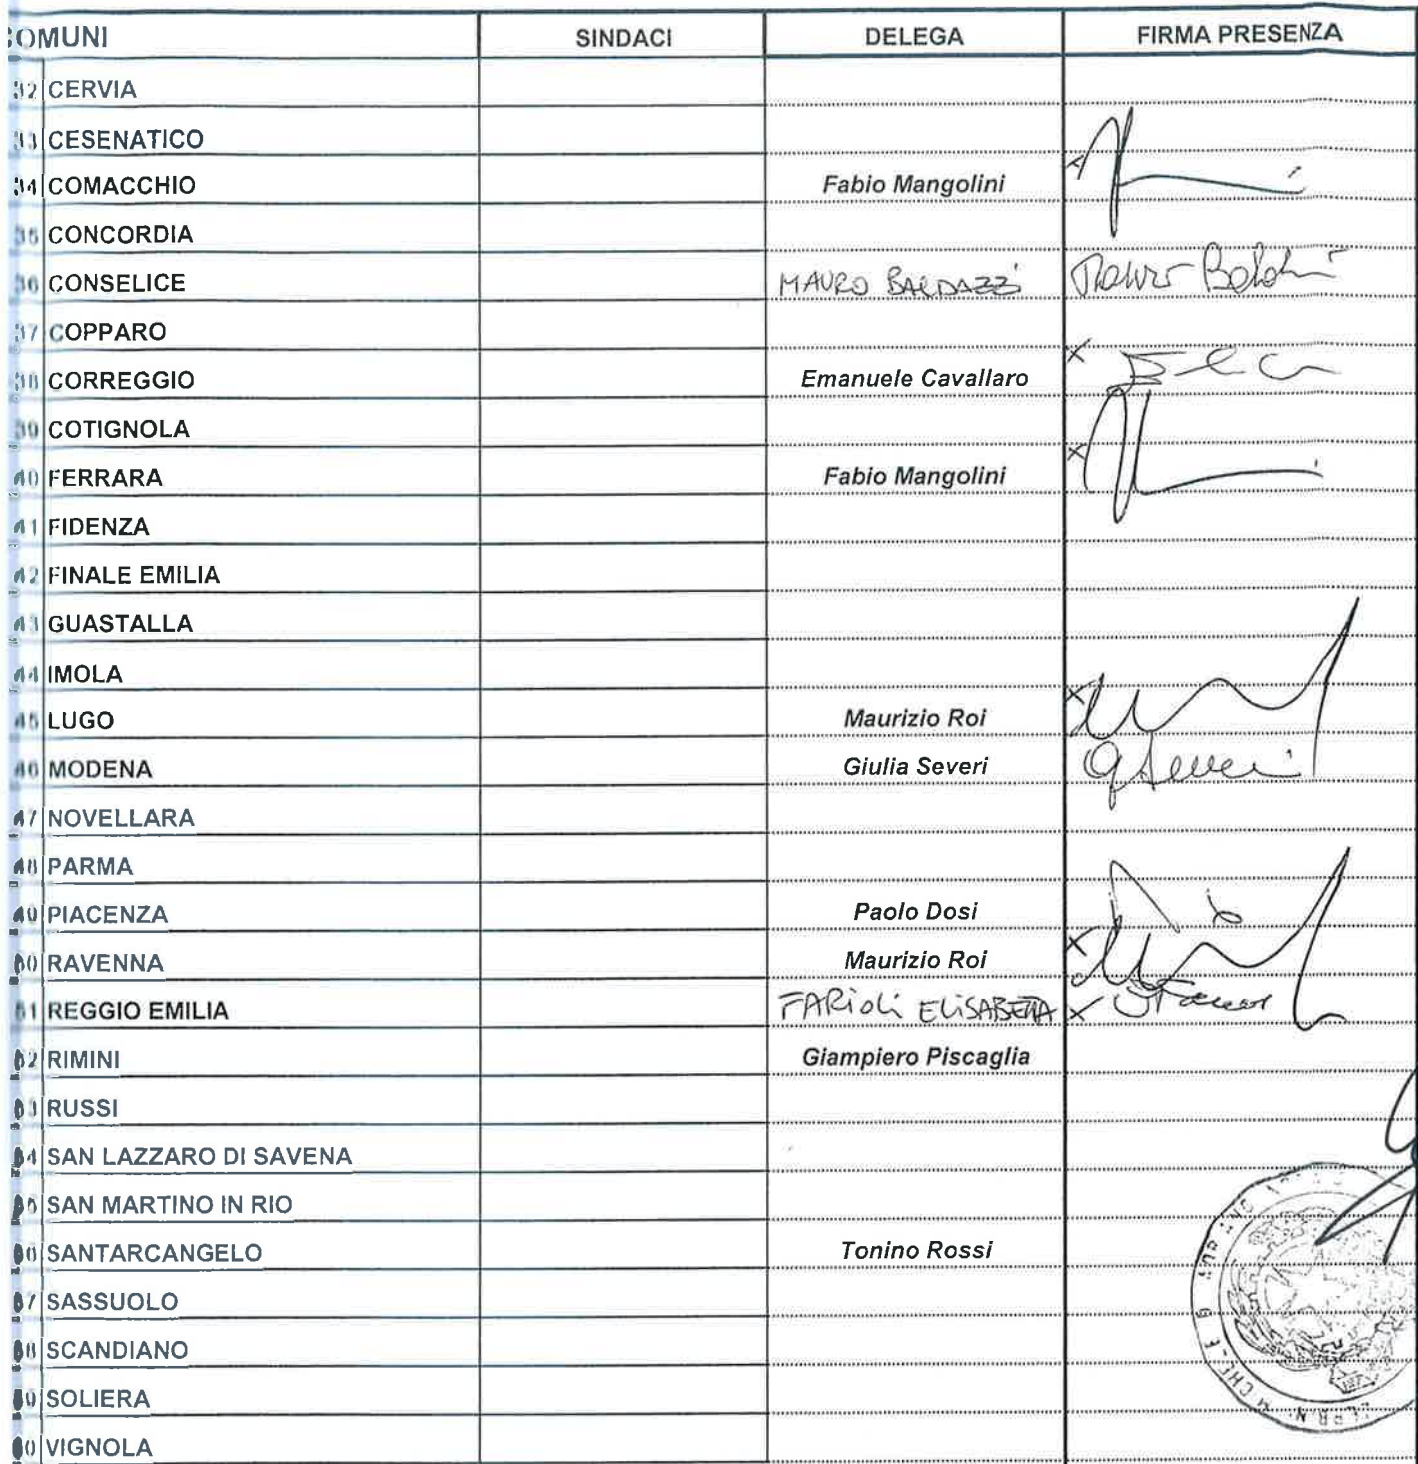 COMUNI SINDACI DELEGA FIRMA PRESENZA
32 CERVIA
33 CESENATICO
34 COMACCHIO Fabio Mangolini
35 CONCORDIA
36 CONSELICE MAURO BALDAZZI
37 COPPARO
38 CORREGGIO Emanuele Cavallaro X
39 COTIGNOLA
40 FERRARA Fabio Mangolini X
41 FIDENZA
42 FINALE EMILIA
43 GUASTALLA
44 IMOLA
45 LUGO Maurizio Roi X
46 MODENA Giulia Severi G Severi
47 NOVELLARA
48 PARMA
49 PIACENZA Paolo Dosi
50 RAVENNA Maurizio Roi X
51 REGGIO EMILIA FARIOLI ELISABETTA X
52 RIMINI Giampiero Piscaglia
53 RUSSI
54 SAN LAZZARO DI SAVENA
55 SAN MARTINO IN RIO
56 SANTARCANGELO Tonino Rossi
57 SASSUOLO
58 SCANDIANO
59 SOLIERA
60 VIGNOLA